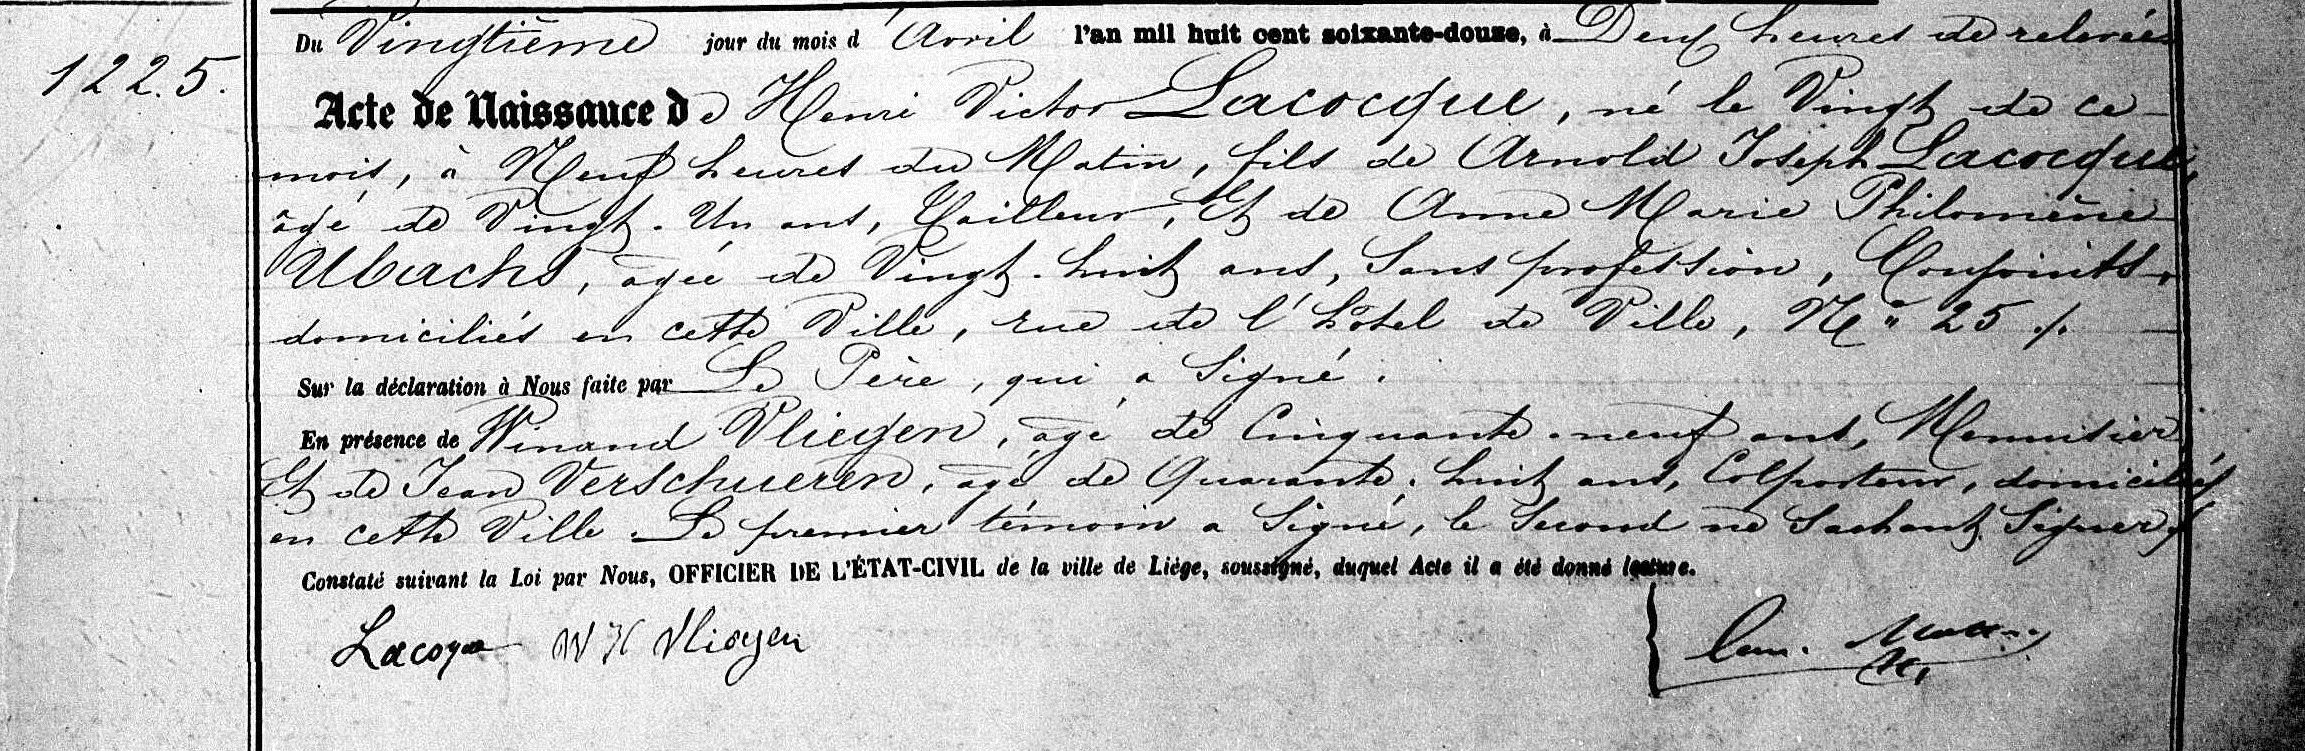 1225.
Du Vingtième jour du mois d'Avril l'an mil huit cent soixante-douze, à Deux heures de relevée
Acte de Naissance de Henri Victor Lacocque, né le Vingt de ce
mois, à Neuf heures du Matin, fils de Arnold Joseph Lacocque,
âgé de Vingt-Un ans, Tailleur, Et de Anne Marie Philomène
Ubachs, agée de Vingt-huit ans, Sans profession, Conjoints,
domiciliés en cette Ville, rue de l'hôtel de Ville, No 25 ./.
Sur la déclaration à Nous faite par Le Père, qui a Signé.
En présence de Winand Vliegen, âgé de Cinquante-neuf ans, Menuisier
Et de Jean Verschueren, agé de Quarante-huit ans, Colporteur, domiciliés
en cette Ville. Le premier témoin a Signé, le Second ne Sachant Signer ./.
Constaté suivant la Loi par Nous, OFFICIER DE L'ÉTAT-CIVIL de la ville de Liége, soussigné, duquel Acte il a été donné lecture.
Lacoque W H Vliegen